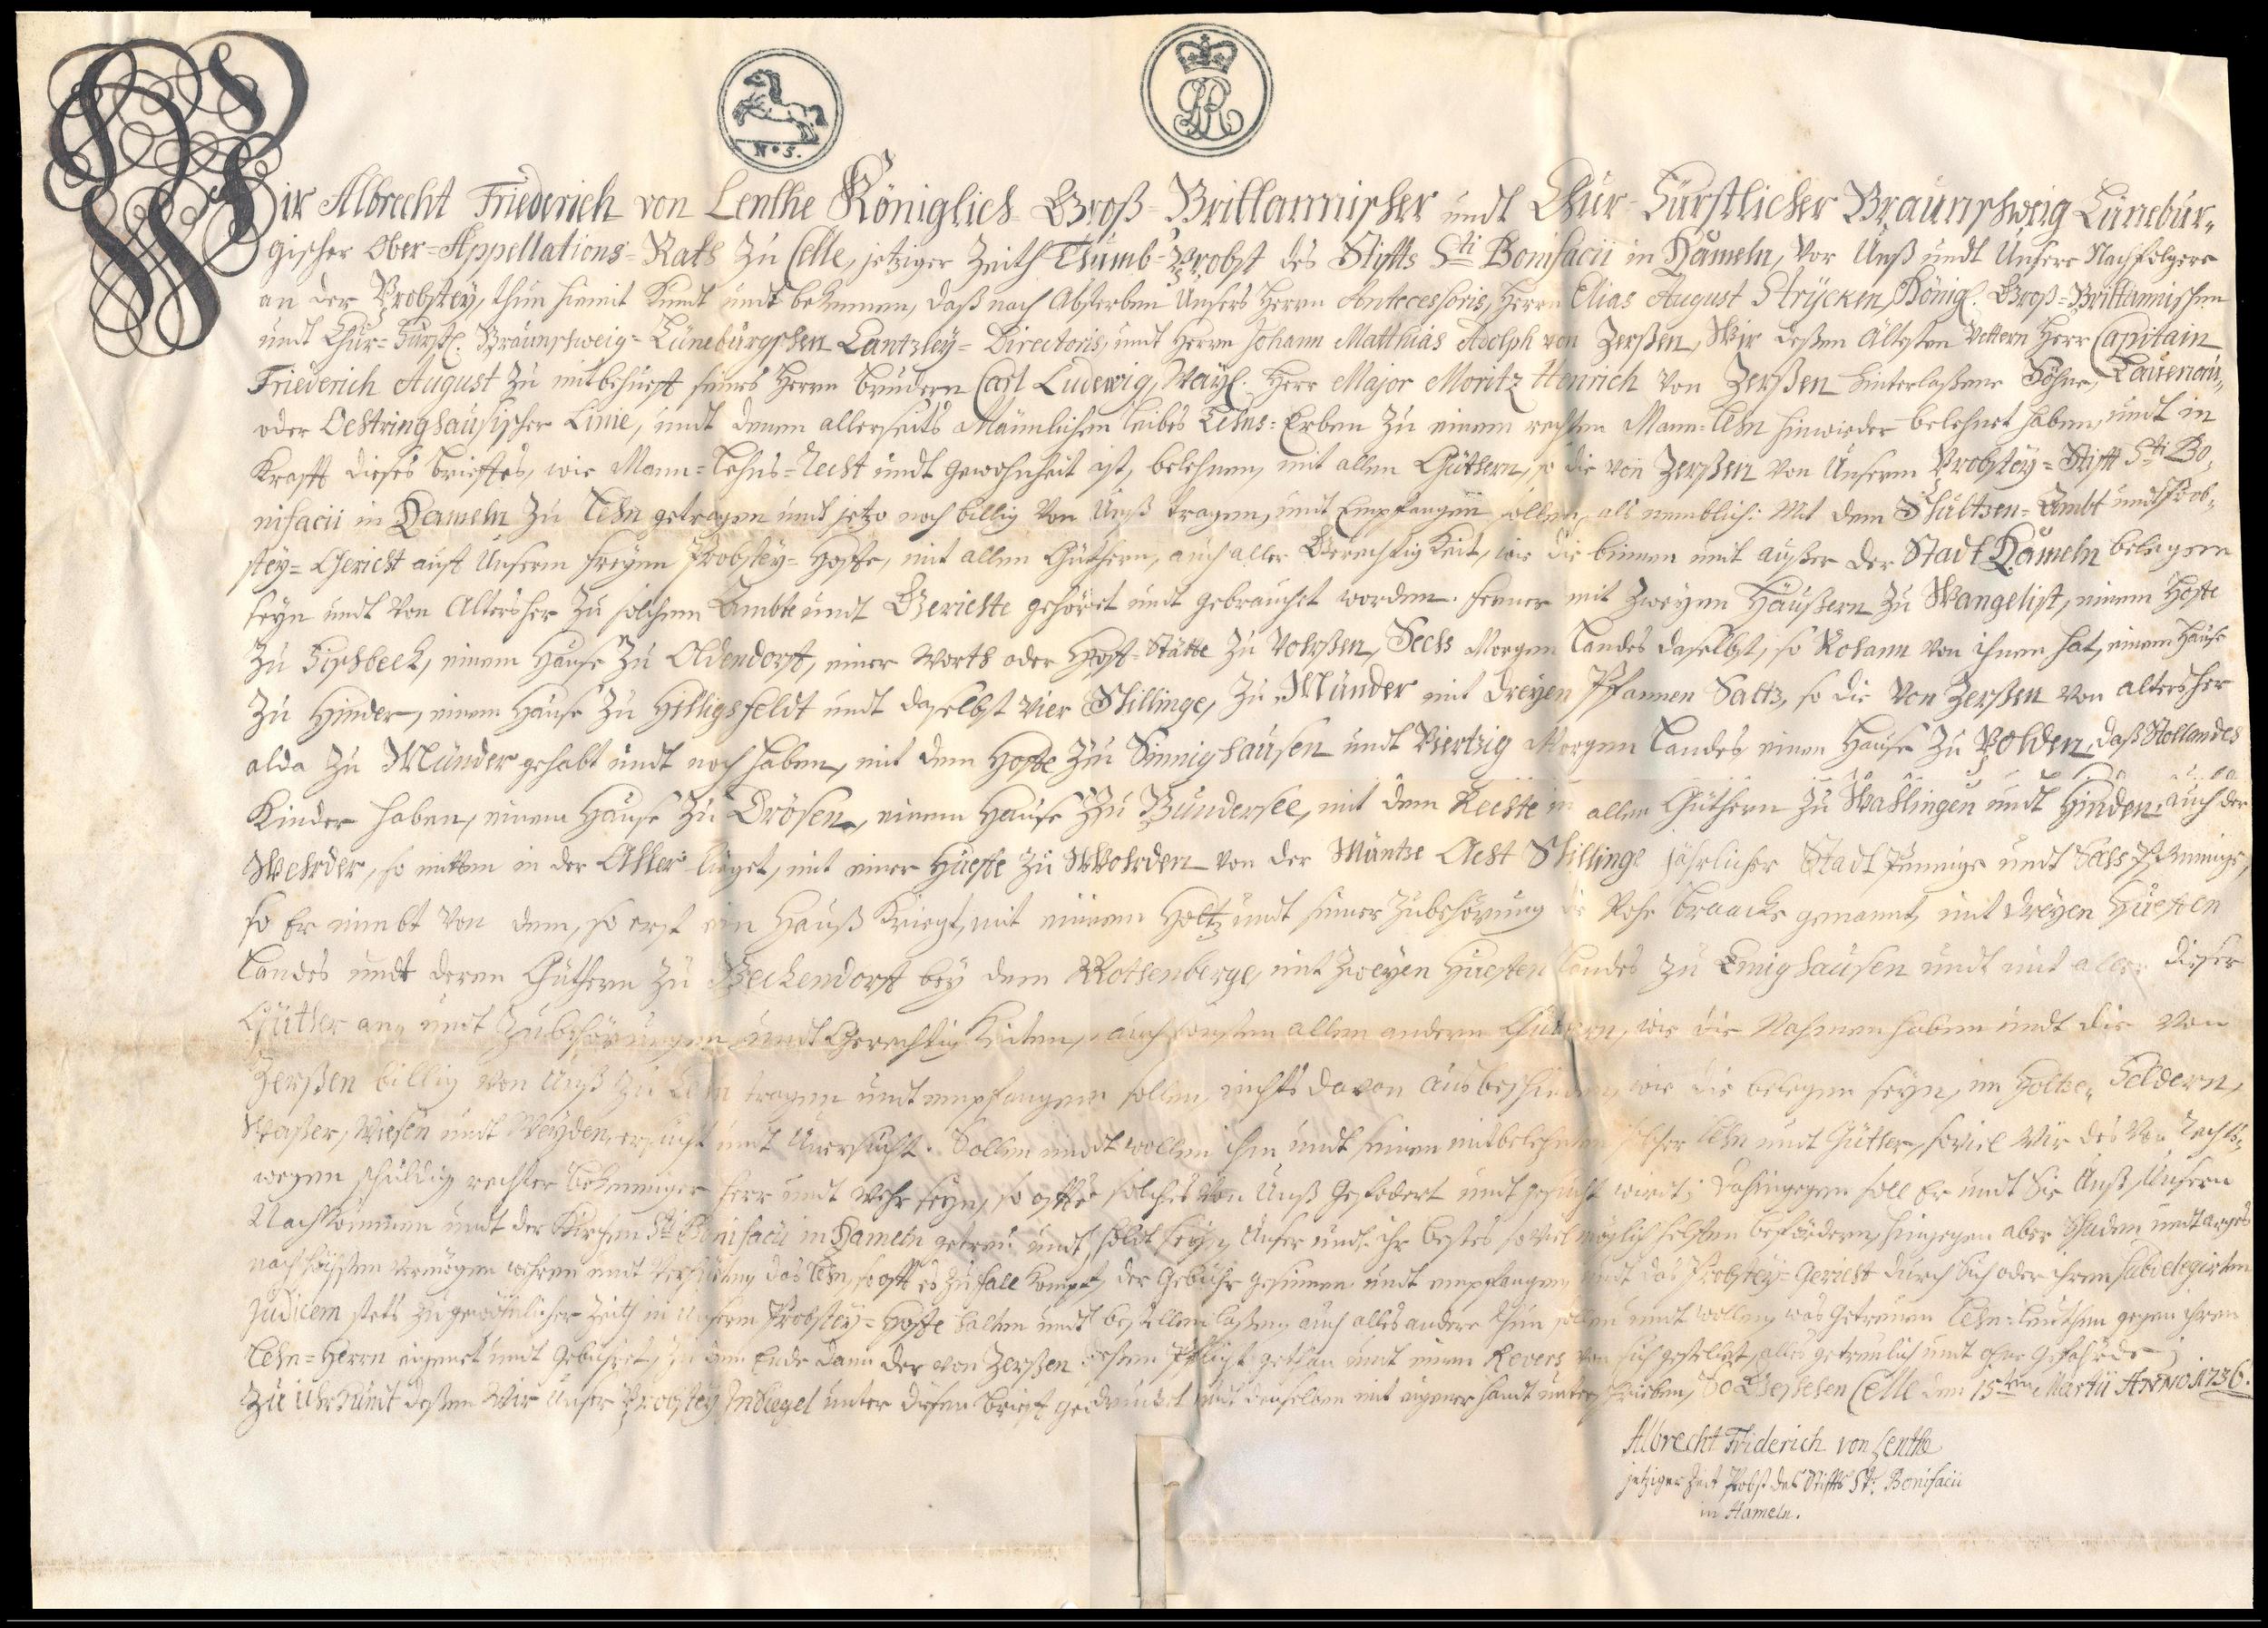 N° 5.
GR
Wir Albrecht Friederich von Lenthe Königlich Groß-Brittannischer undt Chur-Fürstlicher Braunschweig Lünebur-
gischer Ober-Appellations-Rath zu Celle, jetziger Zeith Thumb-Probst des Stiffts Sti Bonifacii in Hameln, vor Unß undt Unsere Nachfolgere
an der Probstey, thun hiemit Kundt undt bekennen, daß nach Absterben Unsers Herrn Antecessoris, Herrn Elias August Strycken, Königl. Groß-Brittannischen
undt Chur-Fürstl. Braunschweig-Lüneburgschen Cantzley-Directoris, undt Herrn Johann Matthias Adolph von Zerßen, Wir deßen Ältesten Vettern Herr Capitain
Friederich August zu mitbehueff seines Herrn Brudern Carl Ludewig, Wayl. Herr Major Moritz Henrich von Zerßen hinterlaßene Söhne, Lauenau-
oder Oestringhausischer Linie, undt denen allerseits Männlichen Leibes Lehns-Erben zu einem rechten Mann-Lehn hinwieder belehnet haben, undt in
Krafft dieses Brieffes, wie Mann-Lehns-Recht undt gewohnheit ist, belehnen, mit allen Güthern, so die von Zerßen von Unserm Probstey-Stifft Sti Bo-
nifacii in Hameln zu Lehn getragen undt jetzo noch billig von Unß tragen, undt Empfangen sollen, als nemblich: Mit dem Schultzen-Ambt undt Prob-
stey-Gericht auff Unserm freyen Probstey-Hoffe, mit allen Güthern, auch aller Gerechtigkeit, wie die binnen undt außer der Stadt Hameln belegen
seyn undt von Alters her zu solchem Ambte undt Gerichte gehöret undt gebrauchet worden. Ferner mit zweyen Häußern zu Wangelist, einem Hoffe
zu Fischbeck, einem Hause zu Oldendorff, einer Worth oder Hoff-Stätte zu Vohrßen, Sechs Morgen Landes daselbst, so Rohann von ihnen hat, einem Hause
zu Hinder, einem Hause zu Hilligsfeldt undt daselbst vier Schillinge, zu Münder mit dreyen Pfannen Saltz, so die von Zerßen von altersher
alda zu Münder gehabt undt noch haben, mit dem Hoffe zu Sinnighausen undt Viertzig Morgen Landes einen Hause zu Polden, daß Rollandes
Kinder haben, einem Hause zu Drösen, einem Hause zu Bundersee, mit dem Rechte in allen Güthern zu Wahlingen undt Hinden, auch der
Wehrder, so mitten in der Aller lieget, mit einer Hueffe zu Wohrden von der Müntze Acht Schillinge jährlicher Stadt Pennige undt Sechs Pfenninge,
so Er nimbt von dem, so erst ein Hauß Kriegt, mit einem Holtz undt seiner Zubehörung die Rohe Braacke genannt, mit dreyen Hueffen
Landes undt deren Güthern zu Beckendorff bey dem Rothenberge, mit zweyen Hueffen Landes zu Emighausen undt mit aller dieser
Güther an- undt Zubehörungen undt Gerechtigkeiten, auch sonsten allen andern Güthern, wie die Nahmen haben undt die von
Zerßen billig von Unß zu Lehn tragen undt empfangen sollen, nichts davon ausbescheiden, wie die belegen seyn, im Holtze, Feldern,
Waßer, Wiesen undt Weyden, ersucht undt Unersucht. Sollen undt wollen ihm undt seinen mitbelehnten solcher Lehn undt Güther, soviel Wir des von Rechts-
wegen schuldig rechter bekenniger Herr undt Wehr seyn, so offte solches von Unß gefodert undt gesucht wirdt; Dahingegen soll Er undt Sie Unß, Unsern
Nachkommen undt der Kirchen Sti Bonifacii in Hameln getreu undt holdt seyn, Unser undt ihr bestes soviel möglich helffen befördern, hingegen aber Schaden undt arges
nach höchstem Vermögen wehren undt das Lehn, so offt es zu fall kompt, der Gebühr gesinnen undt empfangen, undt das Probstey-Gericht durch Sich oder ihren Subdelegirten
Judicem stets zu gewöhnlicher Zeith in Unserm Probstey-Hoffe halten undt bestellen laßen, auch alles andere thun sollen undt wollen, was Getreuen Lehn-Leuthen gegen ihren
Lehn-Herrn eignet undt Gebühret, zu dem Ende dann der von Zerßen deßen Pflicht gethan undt einen Revers von sich gestellet, alles getreulich undt ohne Gefährde;
Zu Uhrkundt deßen Wir Unser Probstey Insiegel unter diesen Brieff gedrucket undt denselben mit eigener Handt unterschrieben, So Geschehen Celle den 15ten Martii ANNO 1736.
Albrecht Friderich von Lenthe
jetziger Zeit Probst des Stiffts Sti Bonifacii
in Hameln.